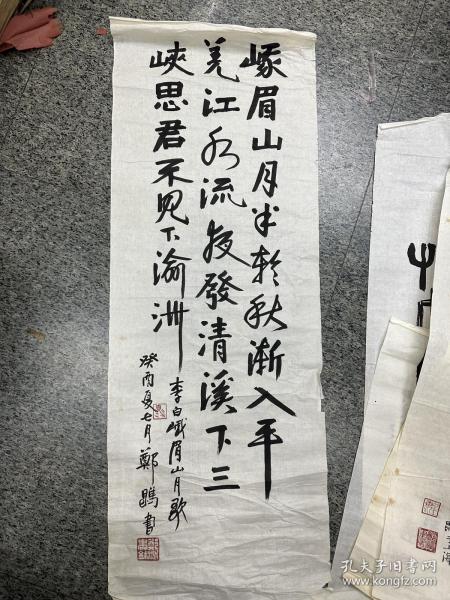 峨眉山月半轮秋渐入平
羌江水流夜發清溪下三
峽思君不见下渝洲
李白峨眉山月歌
癸酉夏七月鄭鴎書
孔夫子旧书网
www.kongfz.com